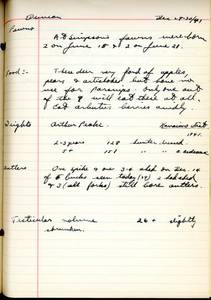 Duncan Dec 15-20/41
Fawns A.B. Simpsons fawns were born
2 on June 18 & 2 on June 21.
Food:- These deer very fond of apples,
pears & artichokes but have no
use for parsnips. But one out
of the 9 will eat them at all.
Eat arbutus berries avidly
Weights Arthur Peake.
1941.
2-3 years 128 hunter
5+ 151
Antlers One spike & one 3-
of 5 bucks seen today (19) 2 had shed
& 3 (all forks) still bore antlers.
Testicular volume 26+ slightly
shrunken.